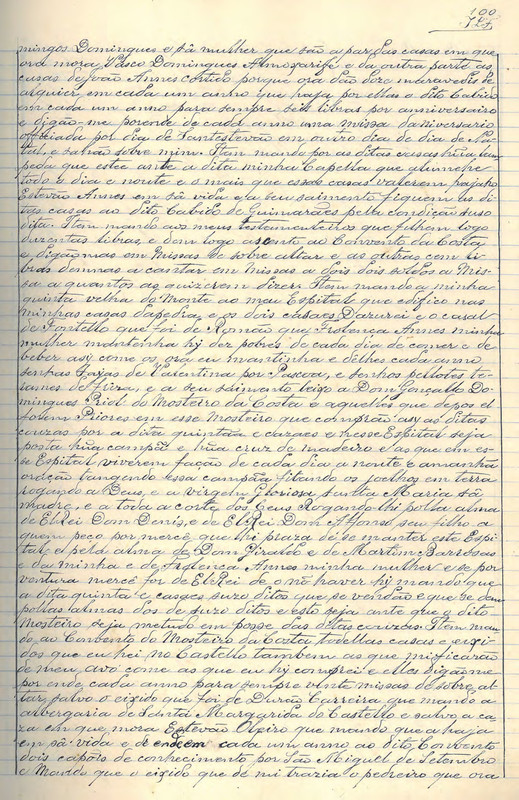 100
mingos Domingues e sá mulher que são a par das casas em que
ora mora Vasco Domingues Almoxarife e da outra parte as
casas de João Annes Cotido porque ora dão doze maravedis de
alquier em cada um anno que haja por ellas o dito Cabido
em cada um anno para sempre seis libras por anniversairo
e digão-me porende de cada anno uma missa da niversario
officiada por dia de Santestevão em outro dia de dia de Na-
tal, e saião sobre mim. Item mando por as ditas casas húa lam-
peda que estee ante a dita minha Capella que alumehe
todo o dia e noute e o mais que essas casas valerem hajaho
Estevão Annes em sá vida e a seu saimento fiquem as di-
tas casas ao dito Cabido de Guimarães pella condição suso
dita. Item mando aos meus testamenteiros que filhem logo
duzentas libras, e dem logo cento ao Convento da Costa
e digão mas em Missas de sobre altar e as outras cem li-
bras demnas a cantar em missas a dois dois soldos a Mis-
sa a quantos as quizerem dizer. Item mando a minha
quinta velha do Monte ao meu Espital que edifico nas
minhas casas dapedia, e os dois casaes Dazurei e o casal
de Fontello que foi de Romão que Froença Annes minha
mulher mantenha hj dez pobres de cada dia de comer e de
beber asy como os, ora eu mantinha e dêlhes cada anno
senhas sajas de Valentina por Pascoa, e senhos pellotes te-
lames de firza, e a seu saimento leixo a Dom Gonçallo Do-
mingues Priol do Mosteiro da Costa e aquelles que depos el
forem Priores em esse Mosteiro que comprão asy as ditas
couzas por a dita quintãa e cazaes e nesse Espital seja
posta húa campãa e húa cruz de madeiro e as que em es-
se Espital viverem fação de cada dia a noute e amanhã
oração tangendo essa campãa fitando os joelhos em terra
rogando a Deus, e a virgem Gloriosa Santa Maria sá
madre, e a toda a corte dos Ceus Rogandolhi polla alma
de ElRei Dom Denis, e de ElRei Dom Affonso seu filho a
quem peço por mercê que lhi praza de se manter este Espi-
tal e pela alma de Dom Giraldo e de Martim Barrosas
e da minha e de Froença Annes minha mulher e se por
ventura mercê for de ElRei de o nõ haver hj mando que
a dita quinta e casaes suzo ditos que se vendão e que se dem
pollas almas dos de suzo ditos e esto seja ante que o dito
Mosteiro seja metudo em posse das ditas couzas. Item man-
do, ao Convento do Mosteiro da Costa todallas casas e enxi-
dos que eu hei no Castello tambem as que mi ficarão
de meu avô come as que eu hj comprei e elles digão me
por ende cada anno para sempre vinte missas de sobre al-
tar, salvo o eixido que foi de Durão Carreira que mando a
alvergaria de Santa Margarida do Castello e salvo a ca-
za em que mora Estevão Opiro que mando que a haja
em sá vida e dê endeem cada um anno ao dito Convento
dois capões de conhecimento por São Miguel de Setembro
e Mando que o eixido que de mi trazia o pedreiro que ora